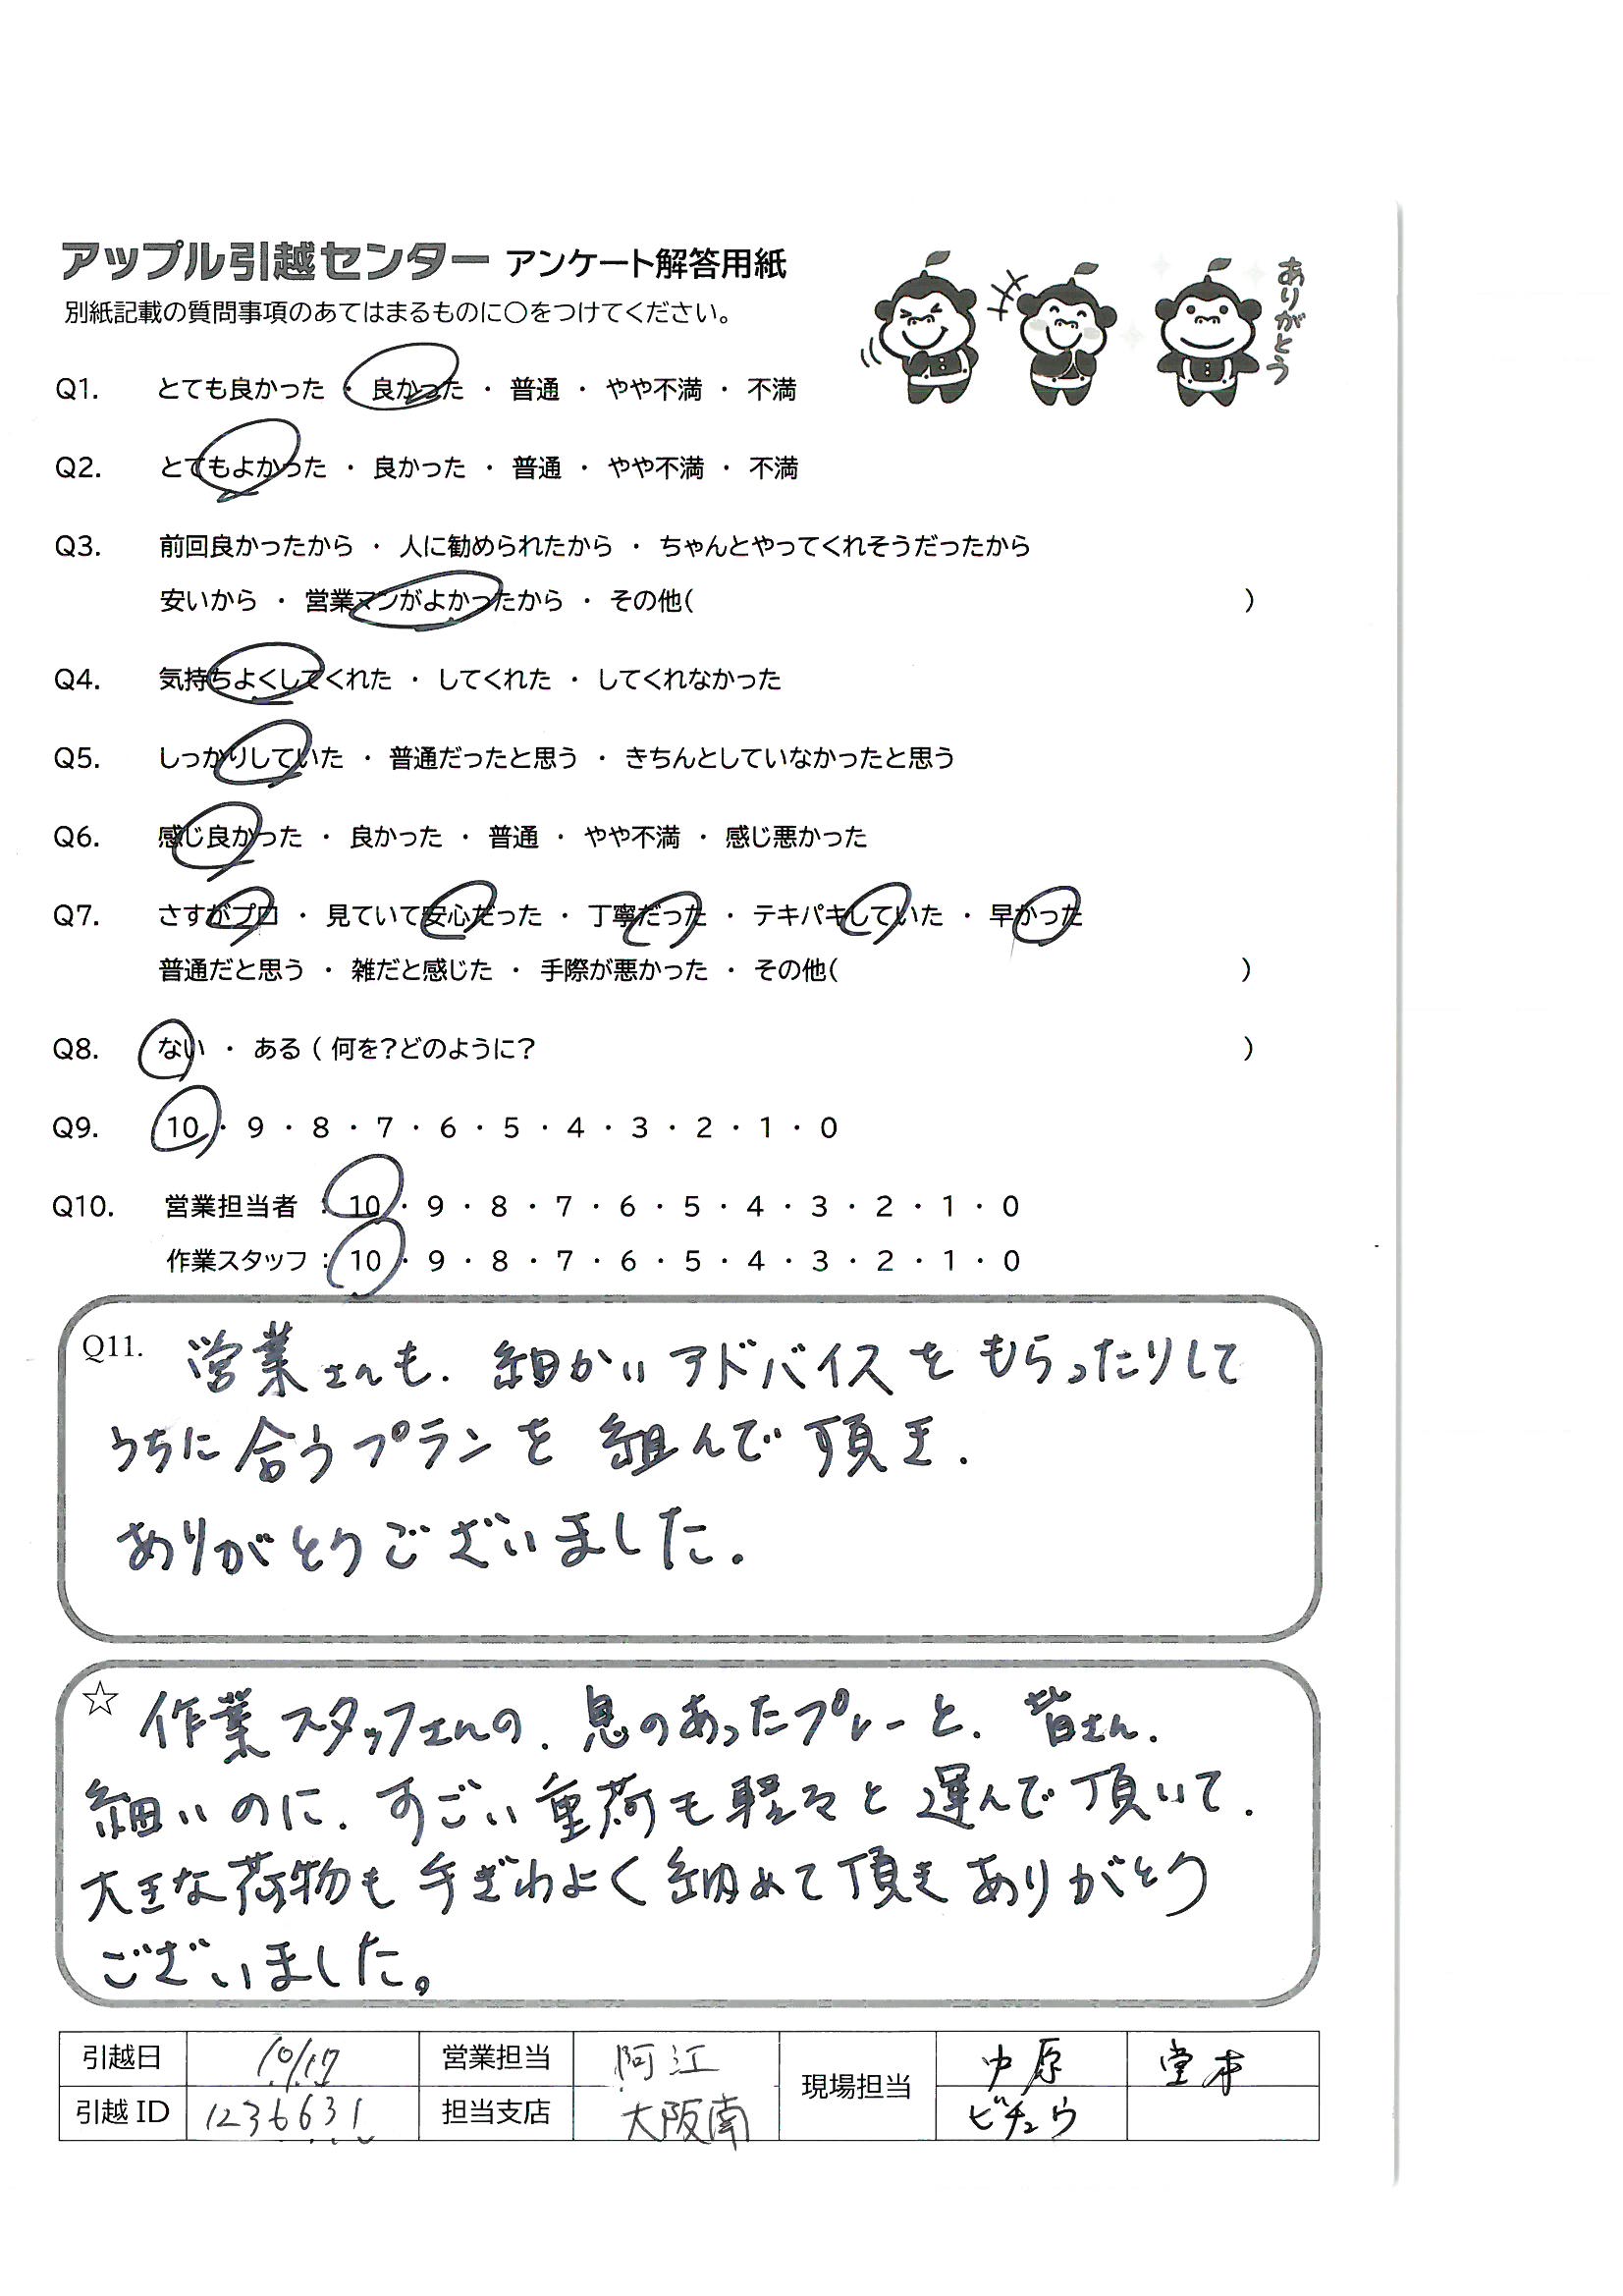 アップル引越センター アンケート解答用紙
別紙記載の質問事項のあてはまるものに○をつけてください。
ありがとう
Q1. とても良かった ・ 良かった ・ 普通 ・ やや不満 ・ 不満
Q2. とてもよかった ・ 良かった ・ 普通 ・ やや不満 ・ 不満
Q3. 前回良かったから ・ 人に勧められたから ・ ちゃんとやってくれそうだったから
安いから ・ 営業マンがよかったから ・ その他( )
Q4. 気持ちよくしてくれた ・ してくれた ・ してくれなかった
Q5. しっかりしていた ・ 普通だったと思う ・ きちんとしていなかったと思う
Q6. 感じ良かった ・ 良かった ・ 普通 ・ やや不満 ・ 感じ悪かった
Q7. さすがプロ ・ 見ていて安心だった ・ 丁寧だった ・ テキパキしていた ・ 早かった
普通だと思う ・ 雑だと感じた ・ 手際が悪かった ・ その他( )
Q8. ない ・ ある ( 何を?どのように? )
Q9. 10 ・ 9 ・ 8 ・ 7 ・ 6 ・ 5 ・ 4 ・ 3 ・ 2 ・ 1 ・ 0
Q10. 営業担当者 : 10 ・ 9 ・ 8 ・ 7 ・ 6 ・ 5 ・ 4 ・ 3 ・ 2 ・ 1 ・ 0
作業スタッフ : 10 ・ 9 ・ 8 ・ 7 ・ 6 ・ 5 ・ 4 ・ 3 ・ 2 ・ 1 ・ 0
Q11. 営業さんも、細かいアドバイスをもらったりして
うちに合うプランを組んで頂き、
ありがとうございました。
☆ 作業スタッフさんの、息のあったプレーと、皆さん、
細いのに、すごい重荷も軽々と運んで頂いて、
大きな荷物も手ぎわよく納めて頂きありがとう
ございました。
引越日 10/17 営業担当 阿江 現場担当 中原 堂本
引越 ID 1236631 担当支店 大阪南 ビチュウ